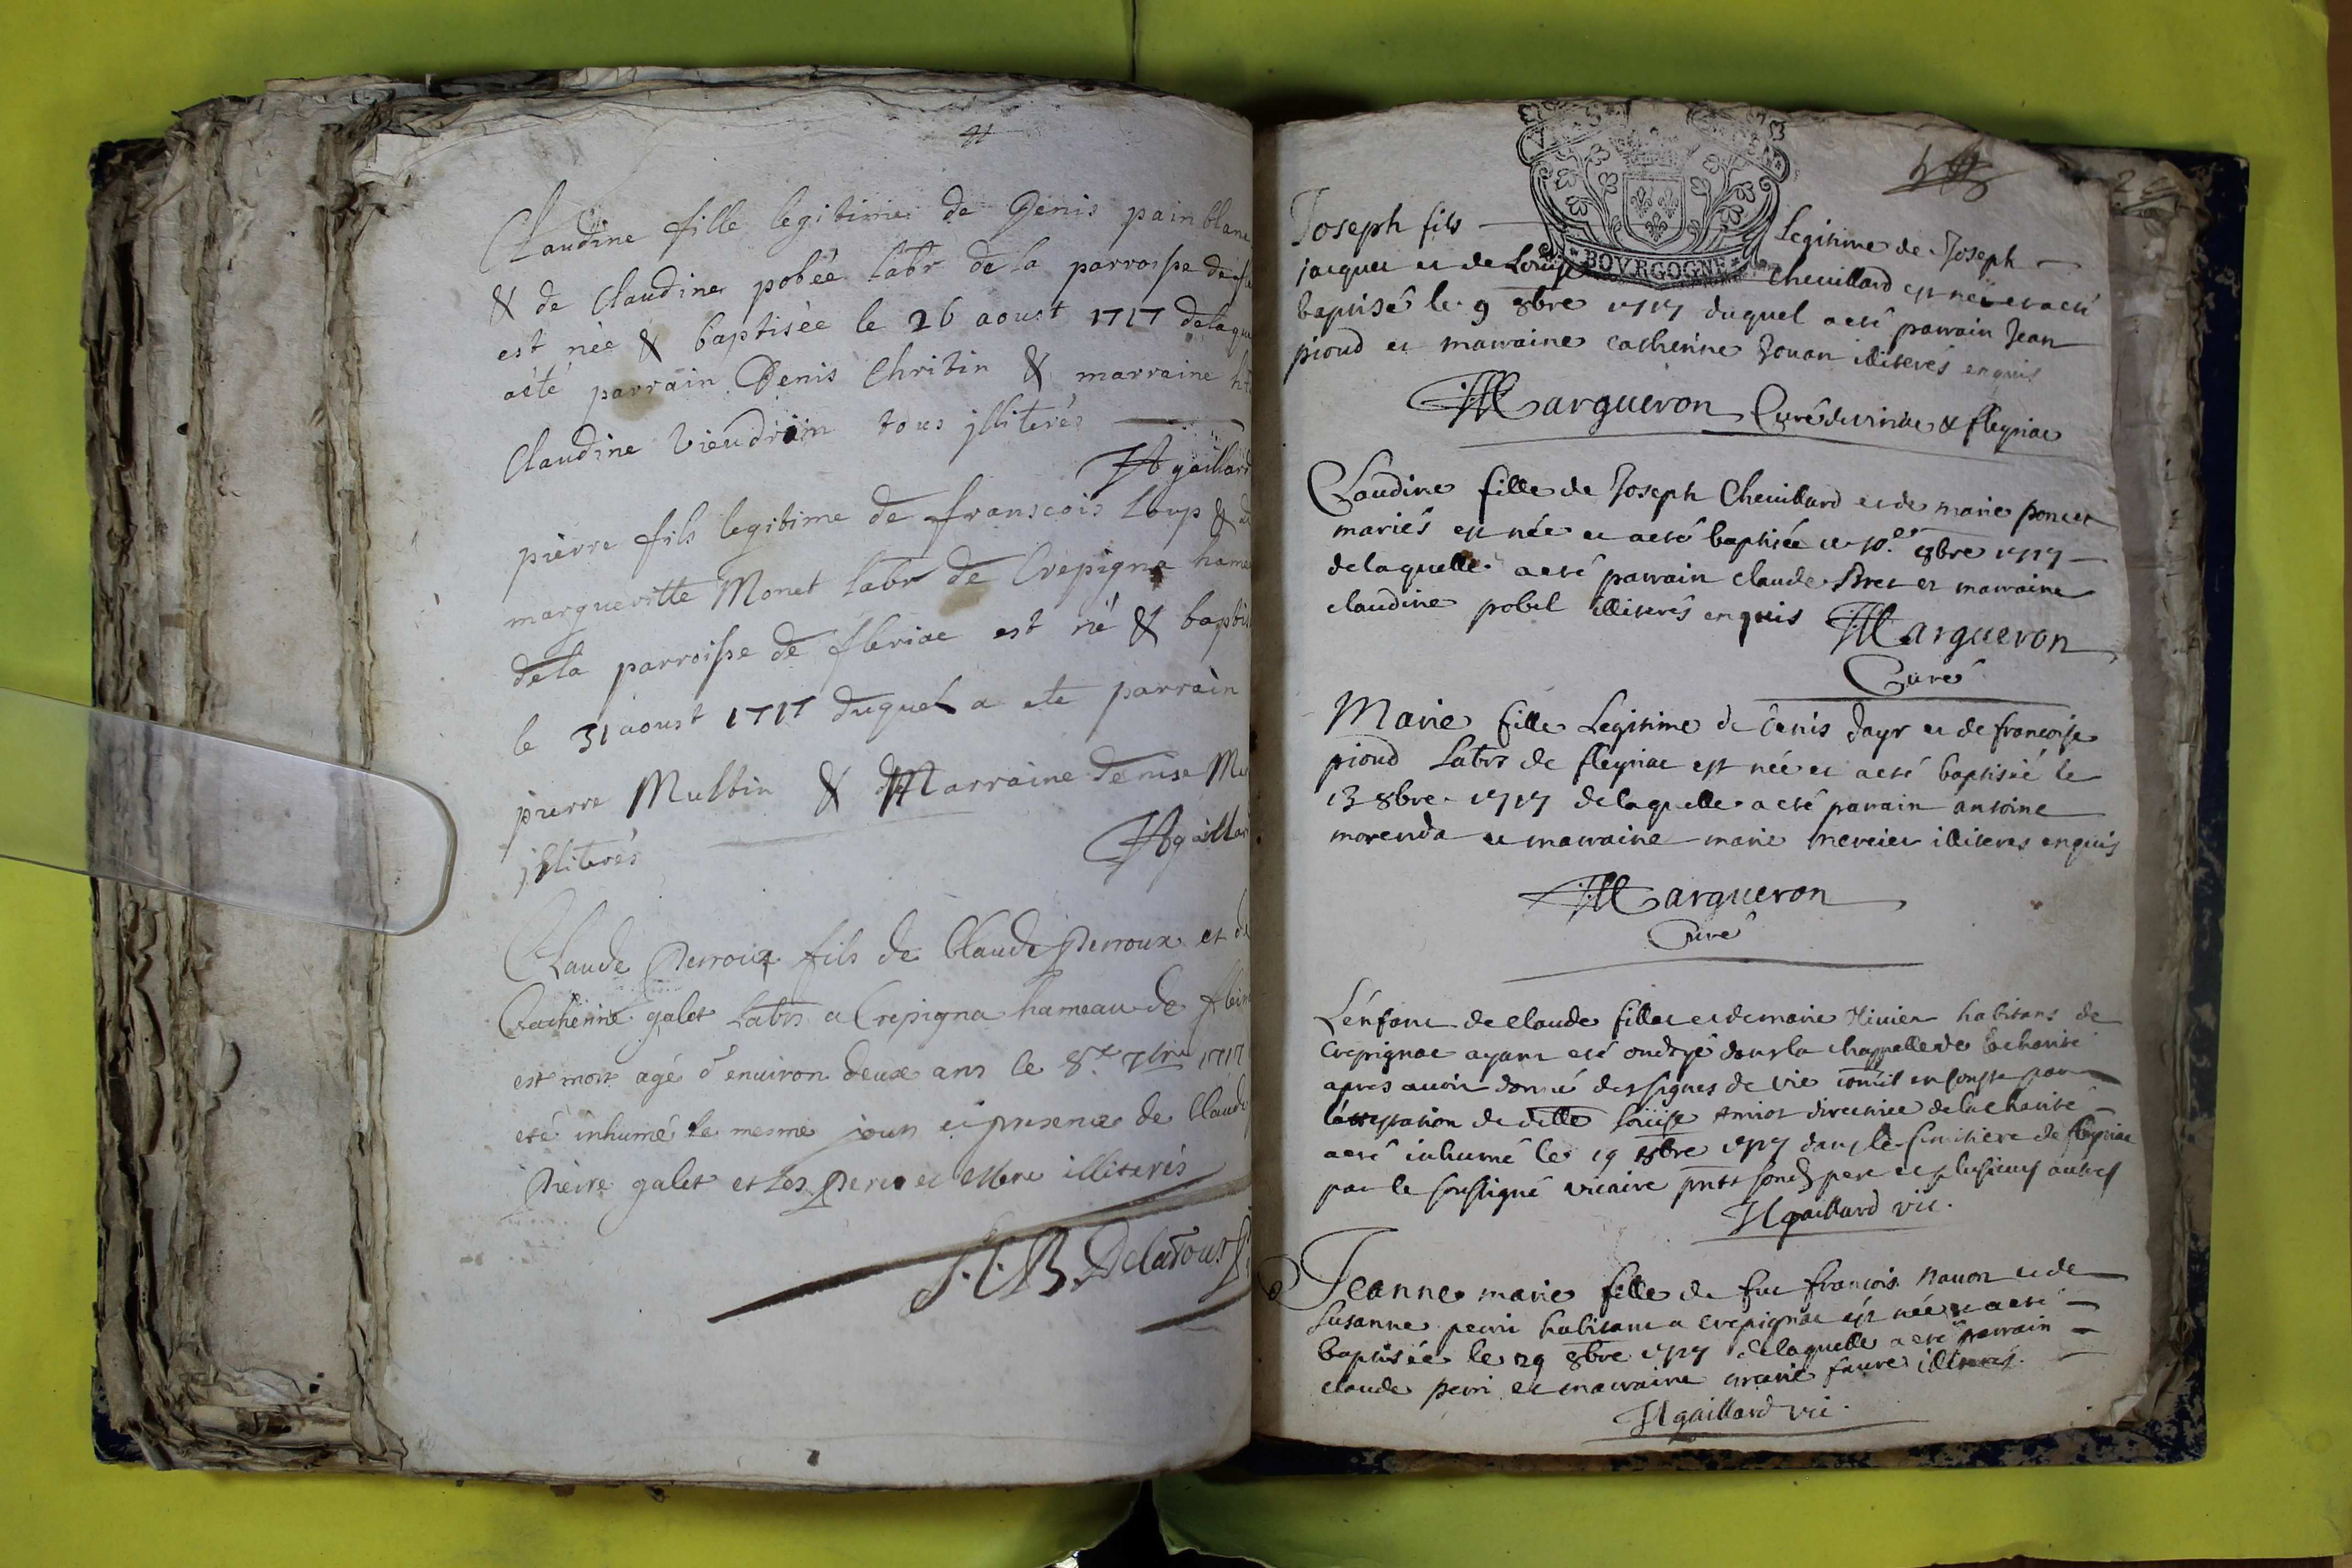 Claudine fille legitime de Denis pain blanc
& de Claudine pobée labr de la parroisse de
est née & baptisée le 26 aoust 1717 delaque
aété parrain Denis Chritin & marraine
Claudine Vieudrin tous jlliterés
gaillard
pierre fils legitime de franscois Loup &
margueritte Monet labr de Crepigna hame
dela parroisse de fleriac est né & baptis
le 31 aoust 1717 duquel a ete parrain
pierre Multin & Marraine denise
jlliterés
gaillar
Claude Perroux fils de Claude Perroux et de
Catherine galet Labrs a Crepigna hameau de
est mort agé d'environ deux ans le 8.e 7bre 1717
eté inhumé le mesme jour ei presence de Claude
Pierre galet et les Pere et Mere illiterés
Delatour
BOVRGOGNE
Joseph fils Legitime de Joseph
jacquet et de Louise Cheuillard est né et a eté
baptisé le 9 8bre 1717 duquel a eté parrain Jean
pioud et marraine catherine Jouan illiterés enquis
Margueron Curé & fleyriac
Claudine fille de Joseph Cheuillard et de marie poncet
mariés est née et a eté baptisée le 10.e 8bre 1717
delaquelle a eté parrain claude Bret et marraine
claudine pobel illiterés enquis Margueron
Curé
Marie fille Legitime de denis dayr et de francoise
pioud Labrs de fleyriac est née et a eté baptisée le
13 8bre 1717 delaquelle a eté parrain antoine
morenda et marraine marie mercier illiteres enquis
Margueron
Curé
L'enfant de claude fillac et de marie habitans de
Crepignac ayant eté ondoyé dans la chappelle de la charité
apres auoir donné des signes de vie par
l'attestation de delle Loüise Amiot directrice de la charité
a eté inhumé le 19 8bre 1717 dans le simitiere de fleyriac
par le soussigné vicaire pnts pere et plusieurs autres
gaillard vic.
Jeanne marie fille de feu francois nauon et de
Susanne perri habitans a Crepignac est née et a eté
baptisée le 29 8bre 1717 delaquelle a eté parrain
claude perri et marraine marie faure illiterés
gaillard vic.